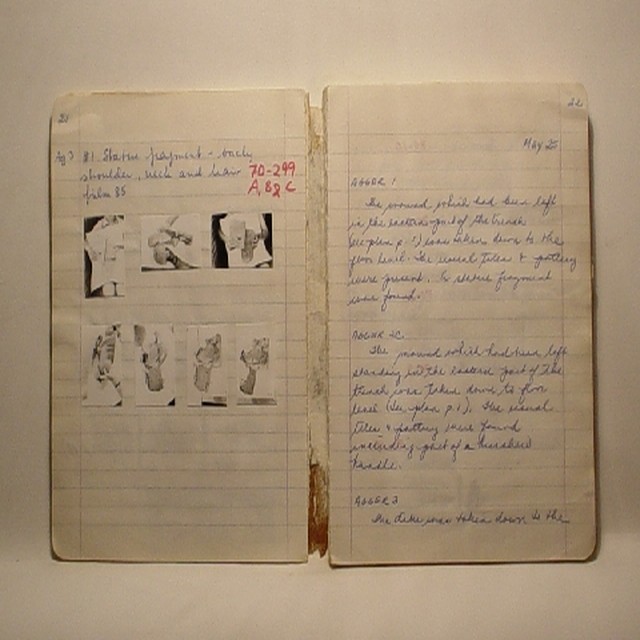 21
Ag 3 #1. Statue fragment - back,
shoulder, neck and hair
70-299
A, B & C
film 85
22
May 25
AGGER 1
The mound which had been left
in the eastern part of the trench
(see plan p. 1) was taken down to the
floor level. The usual tiles & pottery
were present. A statue fragment
was found.
AGGER 2C
The mound which had been left
standing in the eastern part of the
trench was taken down to floor
level (see plan p. 1). The usual
tiles & pottery were found
including part of a
handle.
AGGER 3
The dike was taken down to the